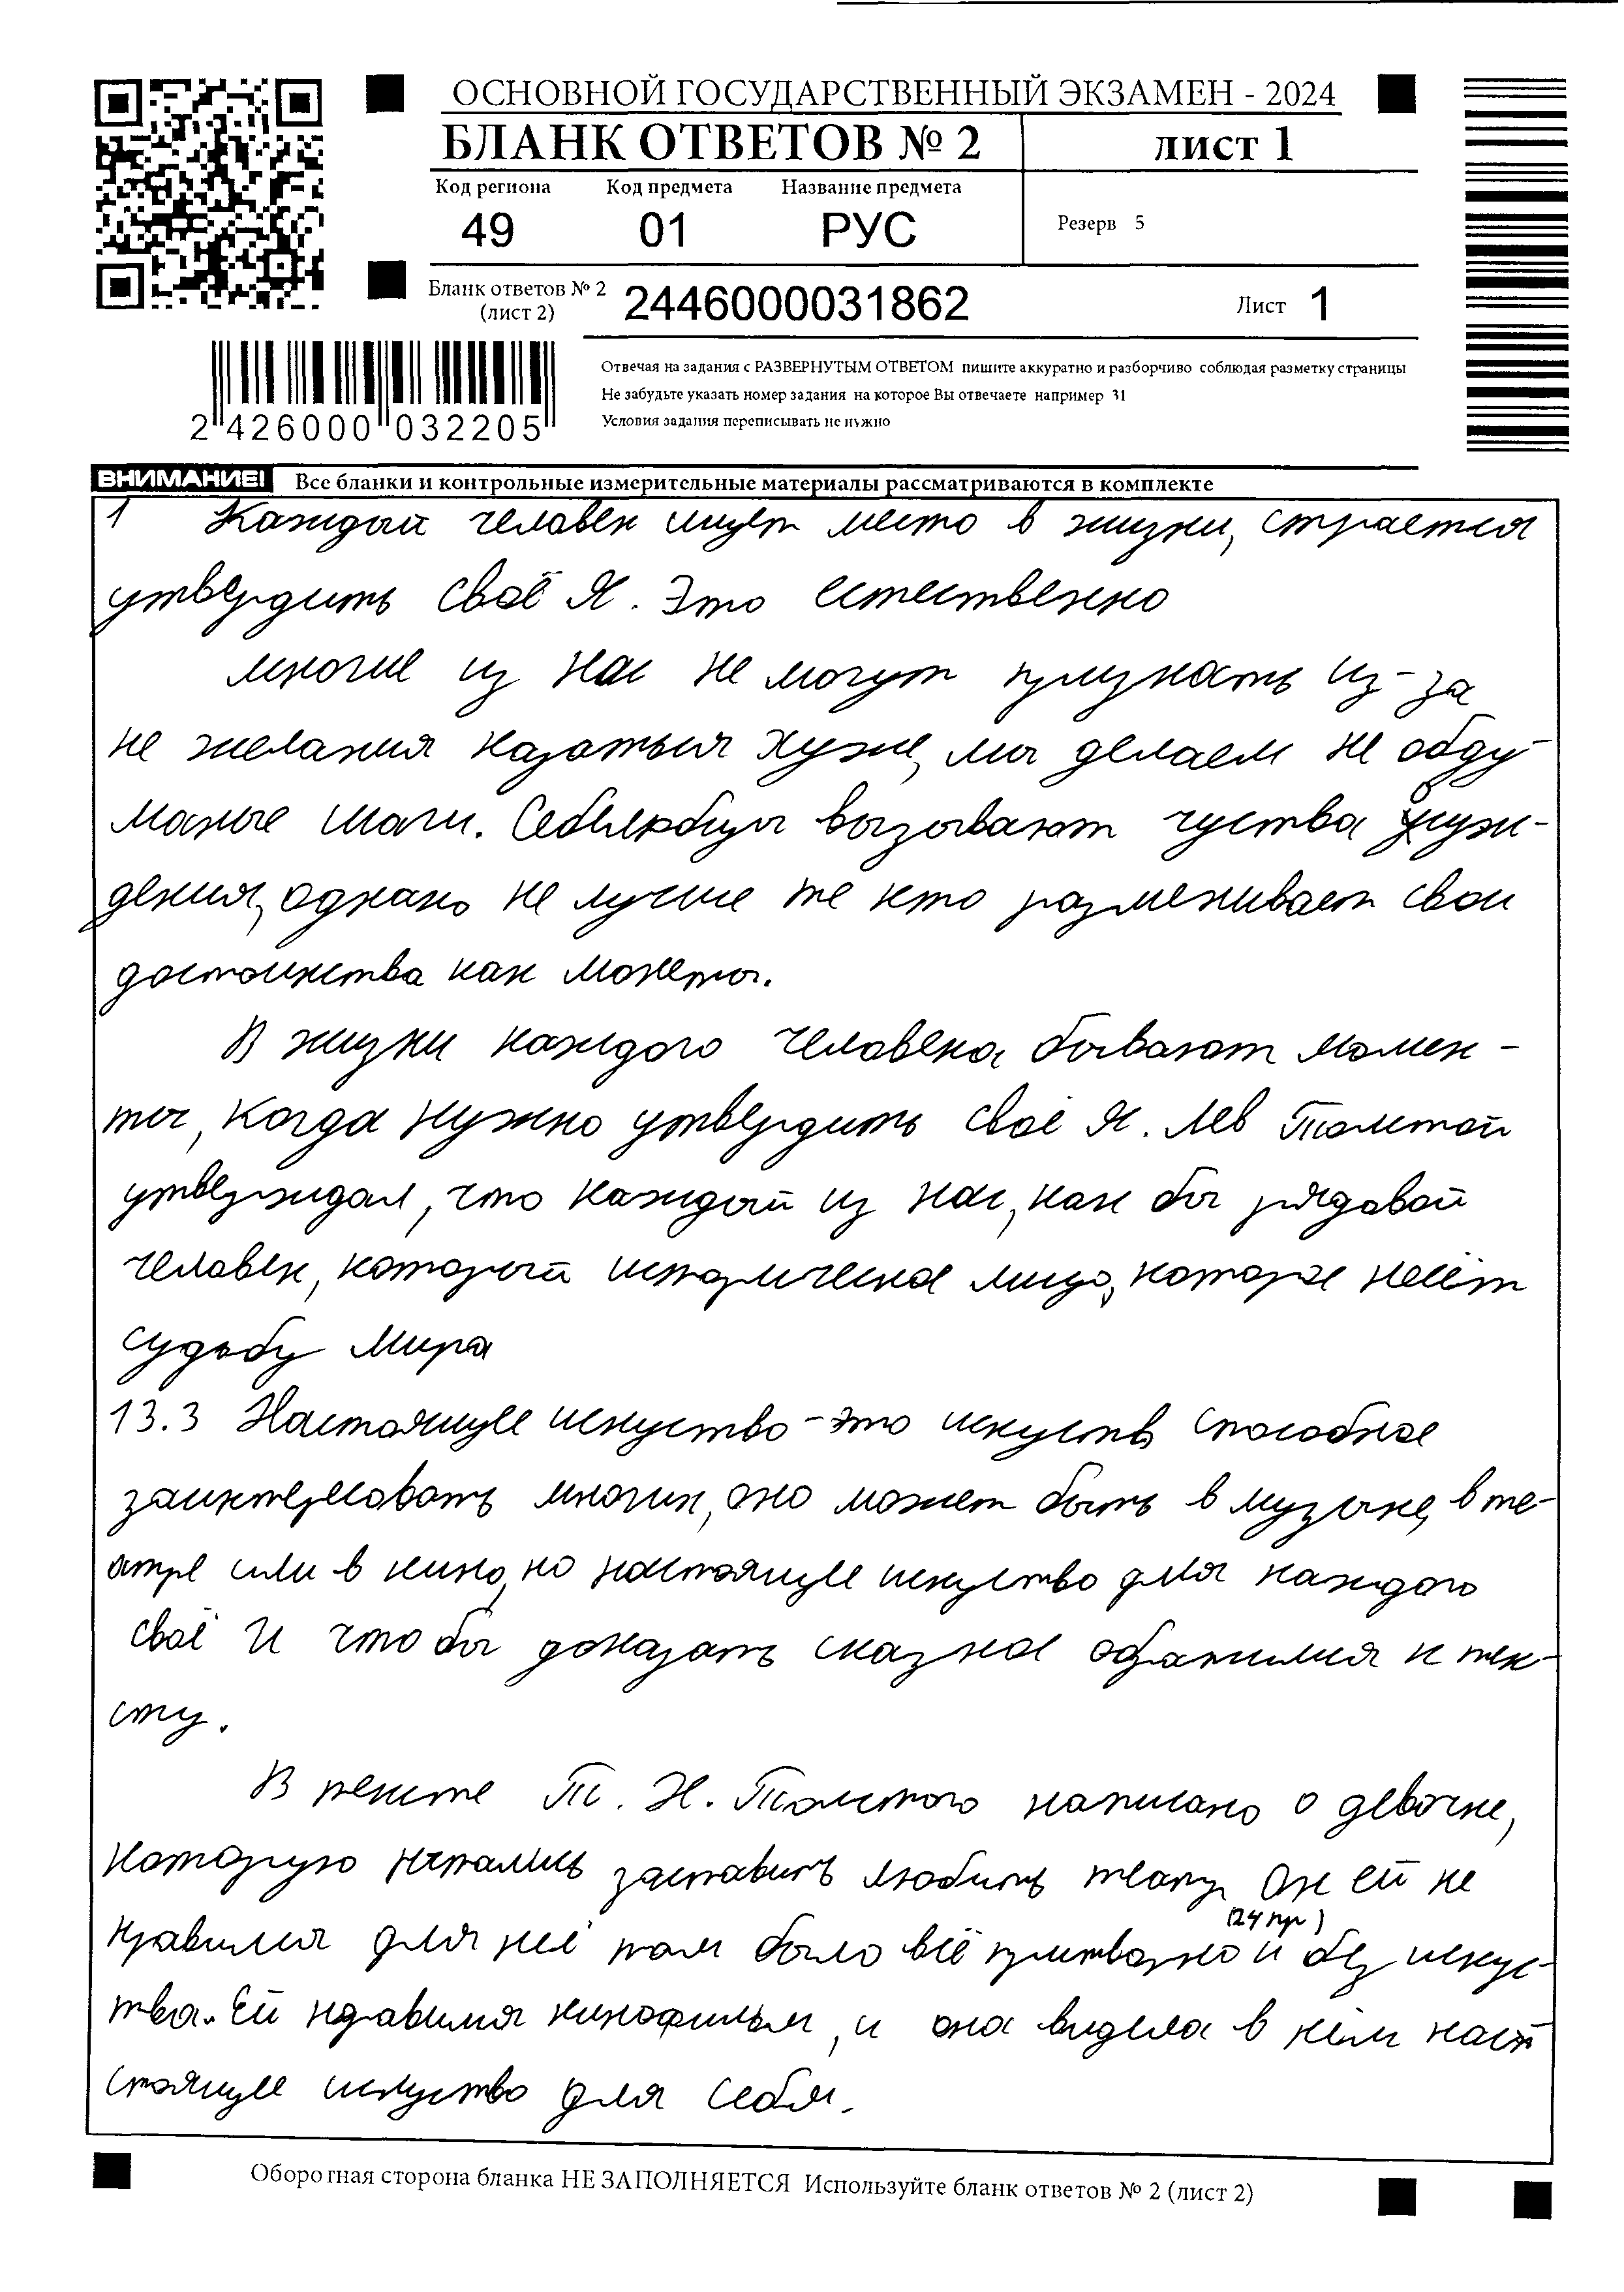 ОСНОВНОЙ ГОСУДАРСТВЕННЫЙ ЭКЗАМЕН - 2024
БЛАНК ОТВЕТОВ № 2 лист 1
Код региона Код предмета Название предмета
49 01 РУС
Резерв 5
Бланк ответов № 2 (лист 2) 2446000031862 Лист 1
Отвечая на задания с РАЗВЕРНУТЫМ ОТВЕТОМ пишите аккуратно и разборчиво соблюдая разметку страницы
Не забудьте указать номер задания на которое Вы отвечаете например 31
Условия задания переписывать не нужно
2 426000 032205
ВНИМАНИЕ! Все бланки и контрольные измерительные материалы рассматриваются в комплекте
1 Каждый человек ищет место в жизни, страется
утвердить своё Я. Это естественно
многие из нас не могут признать из-за
не желания казаться хуже, мы делаем не обду-
маные шаги. Себялюбцы вызывают чуства
дения, однако не лучше те кто размениваем свои
достоинства как монеты.
В жизни каждого человека бывают момен-
ты, когда нужно утвердить своё Я. Лев Толстой
утверждал, что каждый из нас, как бы рядовой
человек, который историческое лицо, которое несёт
судьбу Мира
13.3 Настоящее искуство - это искуств способное
заинтересовать многих, оно может быть в музыке, в те-
атре или в кино, но настоящее искуство для каждого
своё И что бы доказать сказное обратимся к тек-
сту.
В тексте Т. Н. Толстого написано о девочке,
которую пытались заставить любить театр. Он ей не
(24 пр)
нравился для неё там было всё притворно и без искус-
тва. Ей нравился кинофильм, и она видела в нём наст
стоящее искуство для себя.
Оборотная сторона бланка НЕ ЗАПОЛНЯЕТСЯ Используйте бланк ответов № 2 (лист 2)